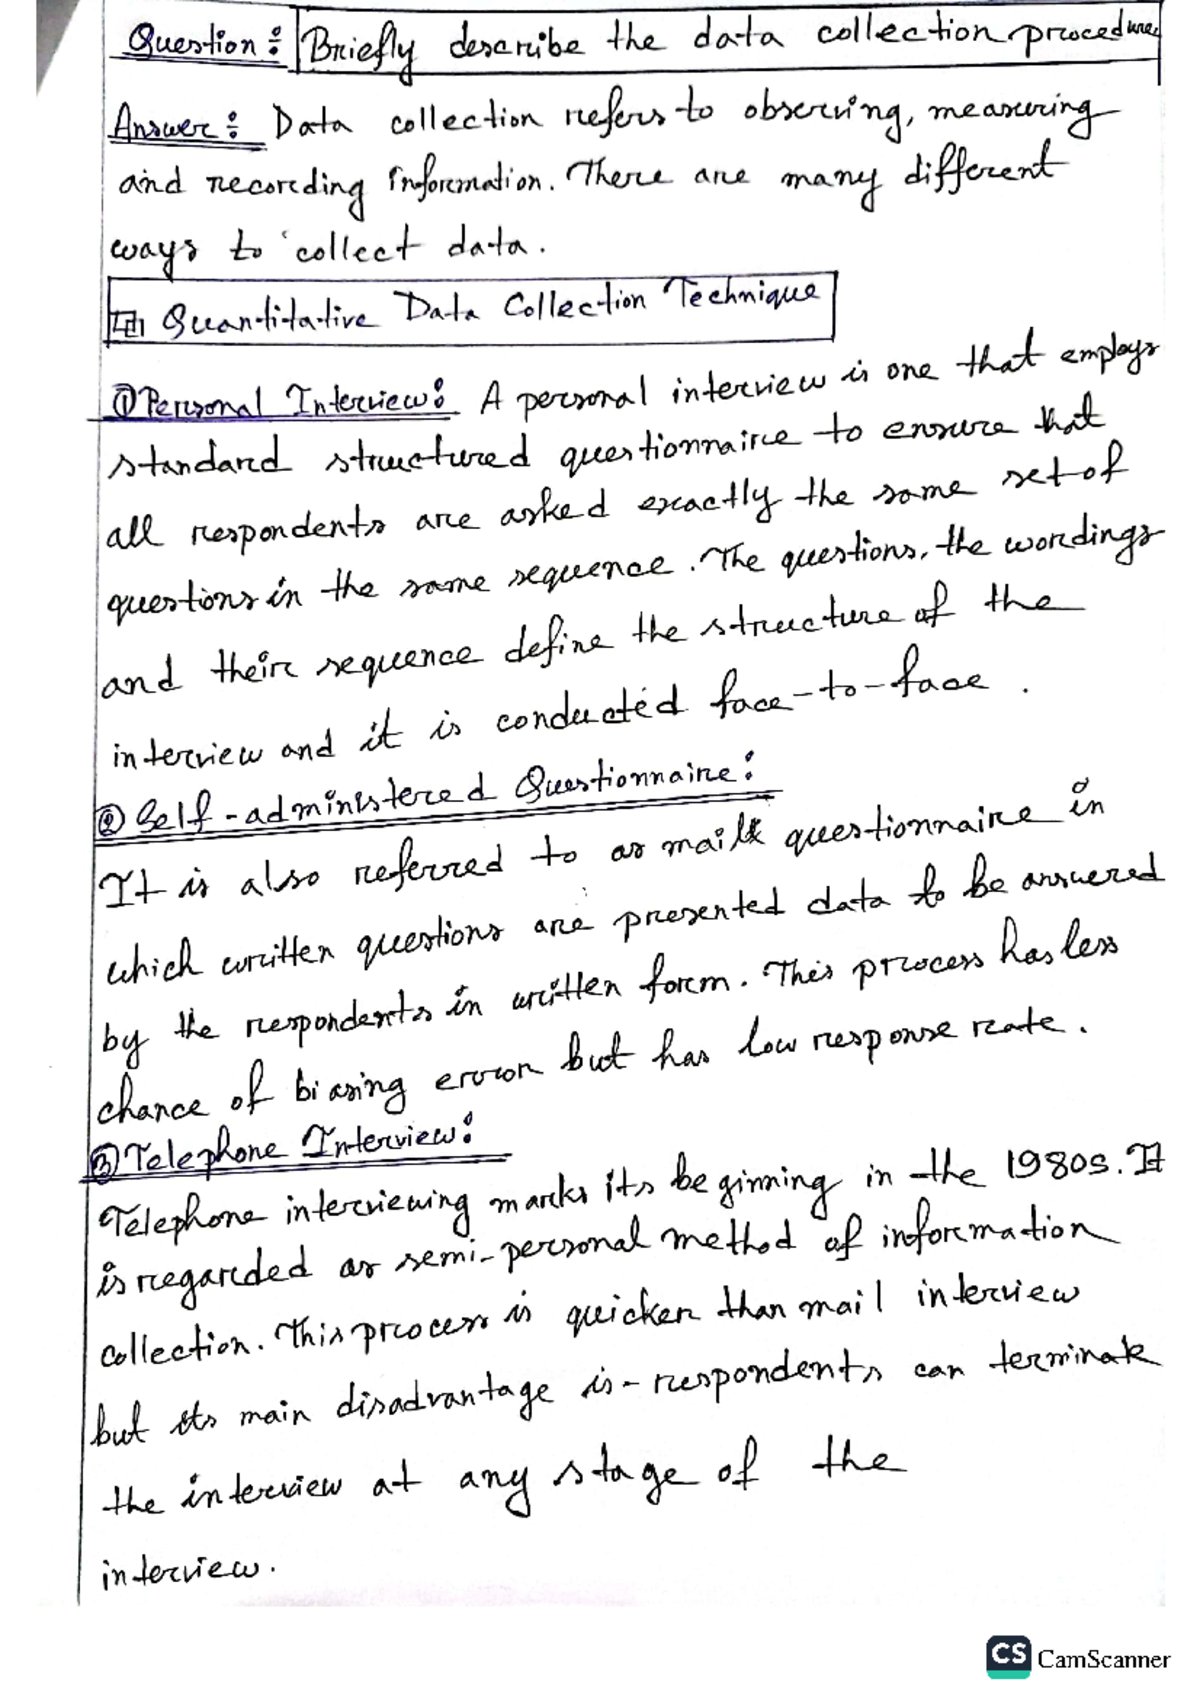 Question: Briefly describe the data collection procedures
Answer: Data collection refers to observing, measuring
and recording information. There are many different
ways to collect data.
Quantitative Data Collection Technique
① Personal Interview: A personal interview is one that employs
standard structured questionnaire to ensure that
all respondents are asked exactly the same set of
questions in the same sequence. The questions, the wordings
and their sequence define the structure of the
interview and it is conducted face-to-face.
② Self-administered Questionnaire:
It is also referred to as mail questionnaire in
which written questions are presented data to be answered
by the respondents in written form. This process has less
chance of biasing error but has low response rate.
③ Telephone Interview:
Telephone interviewing marks its beginning in the 1980s. It
is regarded as semi-personal method of information
collection. This process is quicker than mail interview
but its main disadvantage is- respondents can terminate
the interview at any stage of the
interview.
CS CamScanner